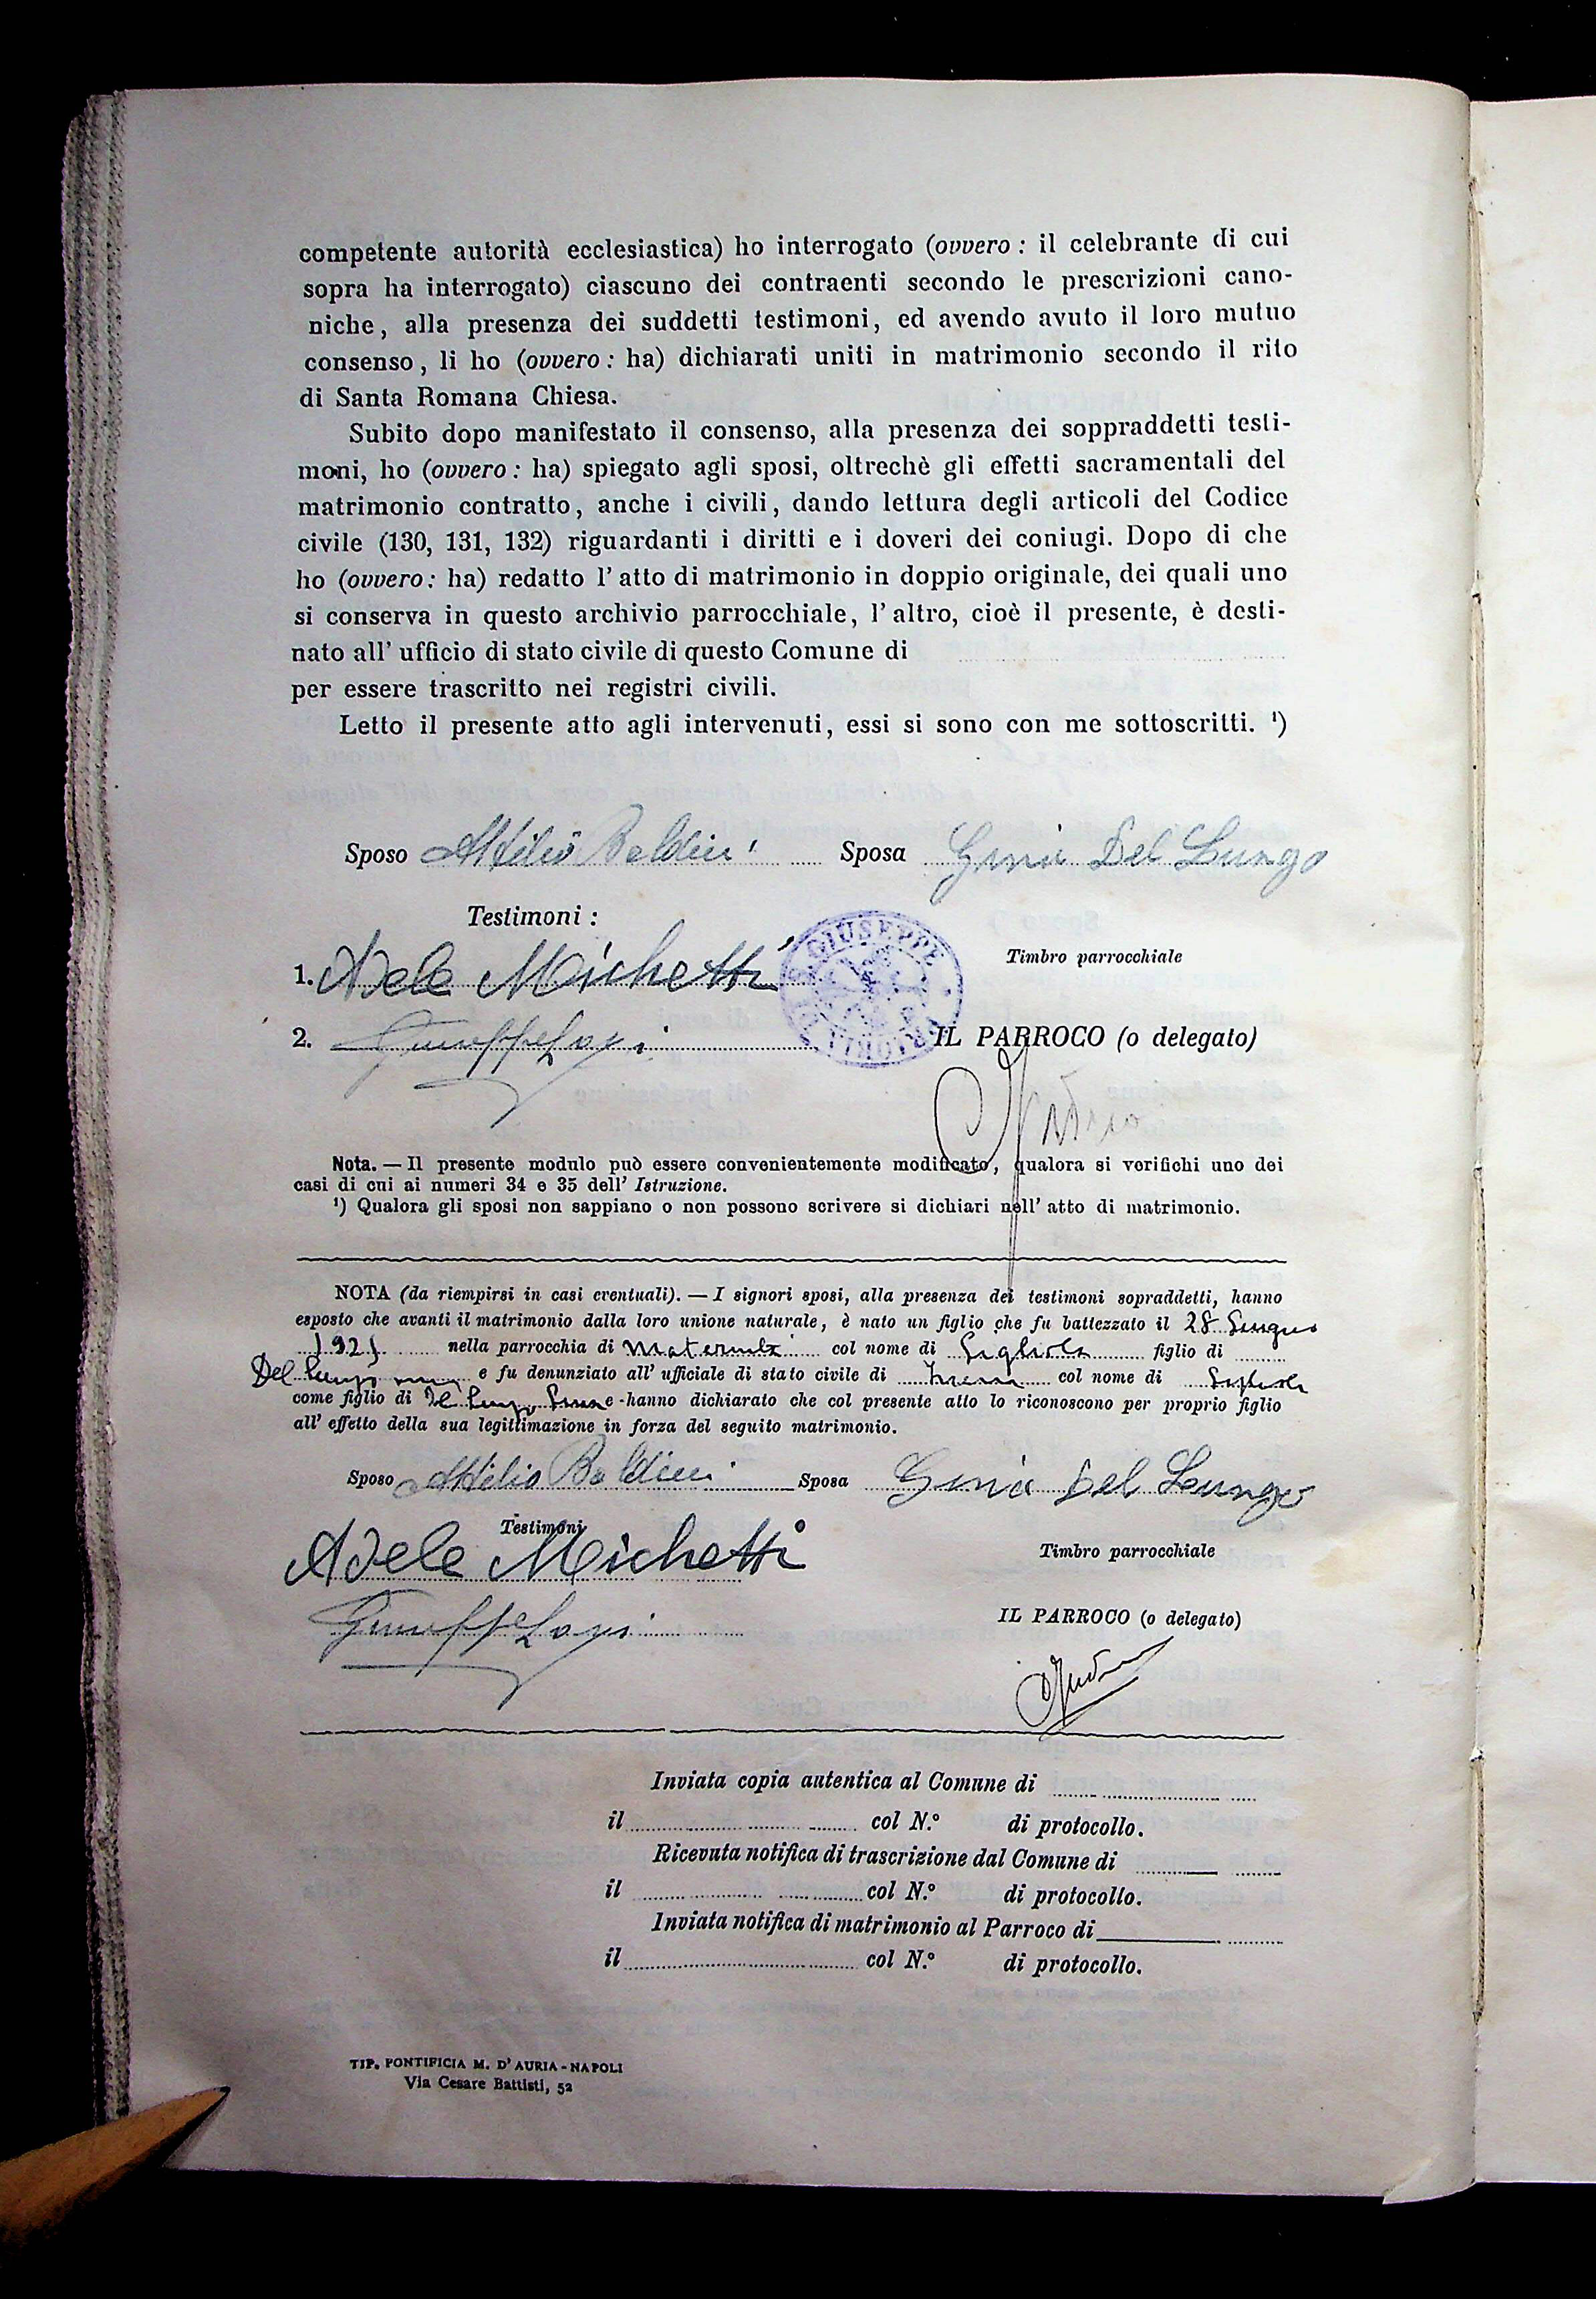 competente autorità ecclesiastica) ho interrogato (ovvero : il celebrante di cui
sopra ha interrogato) ciascuno dei contraenti secondo le prescrizioni cano-
niche, alla presenza dei suddetti testimoni, ed avendo avuto il loro mutuo
consenso, li ho (ovvero : ha) dichiarati uniti in matrimonio secondo il rito
di Santa Romana Chiesa.
Subito dopo manifestato il consenso, alla presenza dei soppraddetti testi-
moni, ho (ovvero : ha) spiegato agli sposi, oltrechè gli effetti sacramentali del
matrimonio contratto, anche i civili, dando lettura degli articoli del Codice
civile (130, 131, 132) riguardanti i diritti e i doveri dei coniugi. Dopo di che
ho (ovvero : ha) redatto l' atto di matrimonio in doppio originale, dei quali uno
si conserva in questo archivio parrocchiale, l' altro, cioè il presente, è desti-
nato all' ufficio di stato civile di questo Comune di
per essere trascritto nei registri civili.
Letto il presente atto agli intervenuti, essi si sono con me sottoscritti. ¹)
Sposo Attilio Baldini Sposa Gina Del Lungo
Testimoni :
S. GIUSEPPE
Timbro parrocchiale
1. Adele Michetti
2. Giuseppe
IL PARROCO (o delegato)
Nota. — Il presente modulo può essere convenientemente modificato, qualora si verifichi uno dei
casi di cui ai numeri 34 e 35 dell' Istruzione.
¹) Qualora gli sposi non sappiano o non possono scrivere si dichiari nell' atto di matrimonio.
NOTA (da riempirsi in casi eventuali). — I signori sposi, alla presenza dei testimoni sopraddetti, hanno
esposto che avanti il matrimonio dalla loro unione naturale, è nato un figlio che fu battezzato il 28 Giugno
nella parrocchia di Maternità col nome di Gigliola figlio di
Del Lungo e fu denunziato all' ufficiale di stato civile di col nome di Gigliola
come figlio di Del Lungo Gina e hanno dichiarato che col presente atto lo riconoscono per proprio figlio
all' effetto della sua legittimazione in forza del seguito matrimonio.
Sposo Attilio Baldini Sposa Gina Del Lungo
Testimoni
Adele Michetti
Timbro parrocchiale
Giuseppe
IL PARROCO (o delegato)
Inviata copia autentica al Comune di
il col N.º di protocollo.
Ricevuta notifica di trascrizione dal Comune di
il col N.º di protocollo.
Inviata notifica di matrimonio al Parroco di
il col N.º di protocollo.
TIP. PONTIFICIA M. D' AURIA - NAPOLI
Via Cesare Battisti, 52